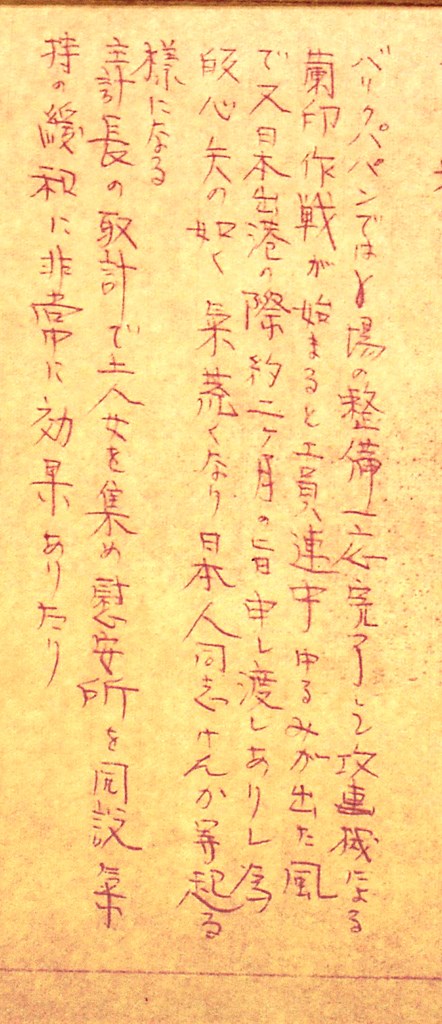 バリクパパンでは〆場の整備一応完了して攻連機による
蘭印作戦が始まると工員連中ゆるみが出た風
で又日本出港の際約二ヶ月の旨申し渡しありし為
皈心矢の如く気荒くなり日本人同志けんか等起る
様になる
主計長の取計で土人女を集め慰安所を開設気
持の緩和に非常に効果ありたり